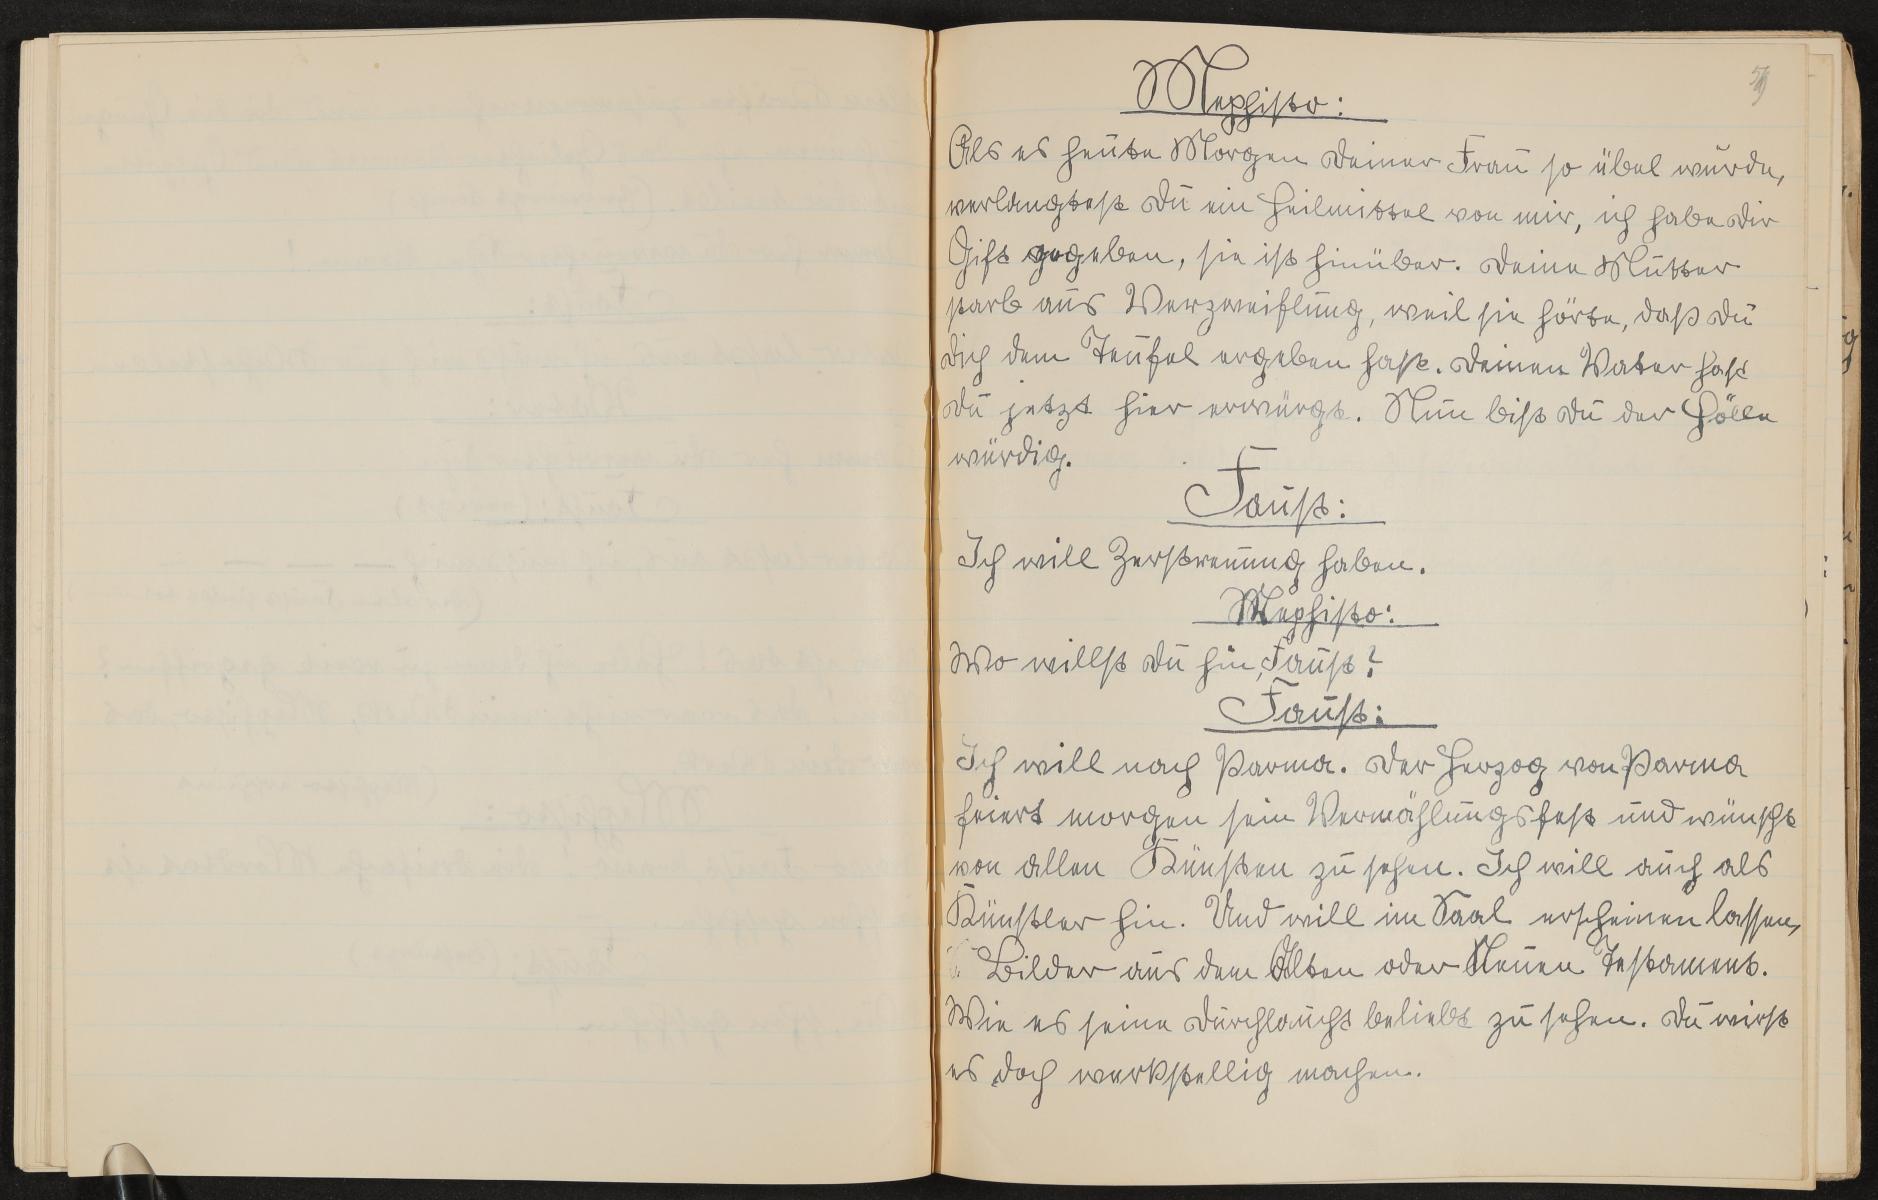 Mephisto:
Als es heute Morgen deiner Frau so übel wurde,
verlangtest du ein Heilmittel von mir, ich habe dir
Gift gegeben, sie ist hinüber. Deine Mutter
starb aus Verzweiflung, weil sie hörte, daß du
dich dem Teufel ergeben hast. Deinen Vater hast
du jetzt hier erwürgt. Nun bist du der Hölle
würdig.
Faust:
Ich will Zerstreuung haben.
Mephisto:
Wo willst du hin, Faust?
Faust:
Ich will nach Parma. Der Herzog von Parma
feiert morgen sein Vermählungsfest und wünscht
von allen Künsten zu sehen. Ich will auch als
Künstler hin. Und will im Saal erscheinen lassen,
Bilder aus dem Alten oder Neuen Testament.
Wie es seine Durchlaucht beliebt zu sehen. Du wirst
es doch werkstellig machen.